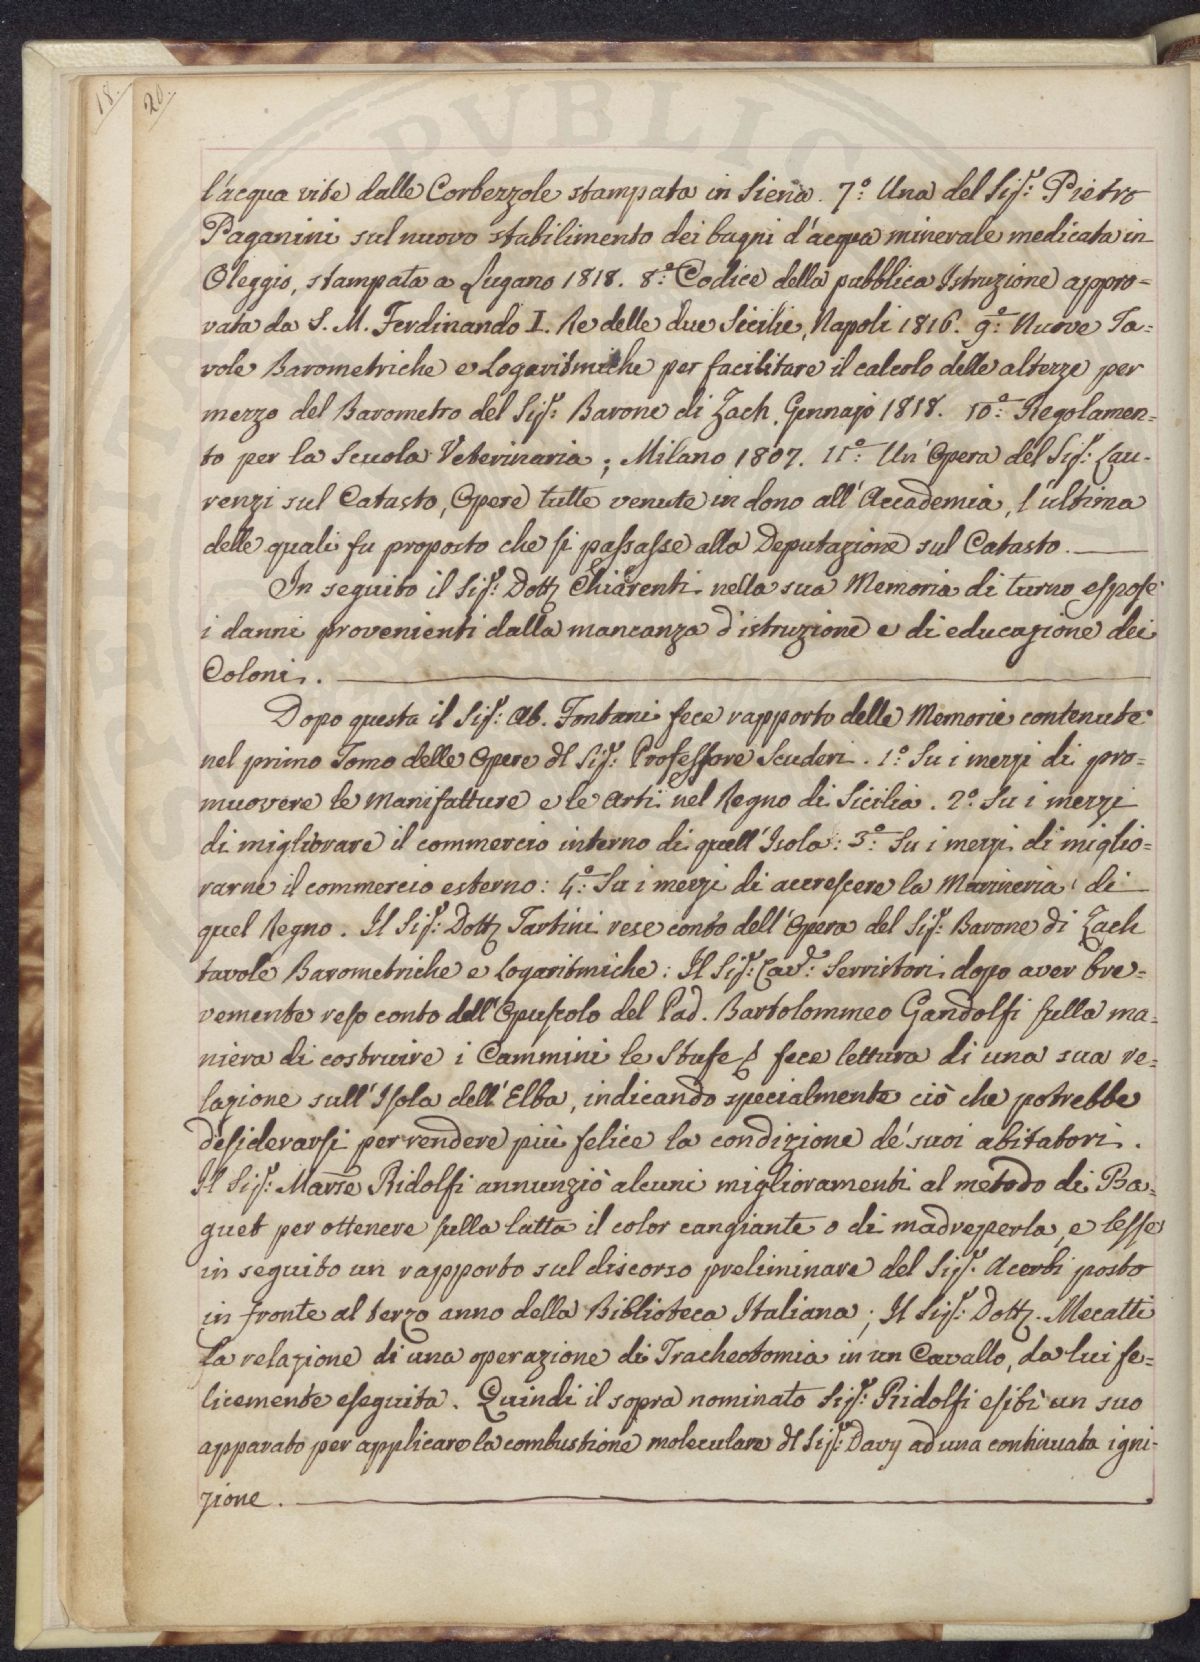 18.
20.
l'acqua vite dalle Corbezzole stampata in Siena. 7.º Una del Sig.r Pietro
Paganini sul nuovo stabilimento dei bagni d'acqua minerale medicata in
Oleggio, stampata a Lugano 1818. 8.º Codice della pubblica Istruzione appro=
vata da S. M. Ferdinando I. Re delle due Sicilie, Napoli 1816. 9.º Nuove Ta=
vole Barometriche e Logaritmiche per facilitare il calcolo delle altezze per
mezzo del Barometro del Sig.r Barone di Zach, Gennajo 1818. 10.º Regolamen=
to per la Scuola Veterinaria; Milano 1807. 11.º Un'Opera del Sig.r Lau=
renzi sul Catasto, Opere tutte venute in dono all'Accademia, l'ultima
delle quali fu proposto che si passasse alla Deputazione sul Catasto.
In seguito il Sig.r Dott. Chiarenti nella sua Memoria di turno espose
i danni provenienti dalla mancanza d'istruzione e di educazione dei
Coloni.
Dopo questa il Sig.r Ab. Fontani fece rapporto delle Memorie contenute
nel primo Tomo delle Opere dl Sig.r Professore Scuderi. 1.º Su i mezzi di pro=
muovere le Manifatture e le Arti nel Regno di Sicilia. 2.º Su i mezzi
di migliorare il commercio interno di quell'Isola: 3.º Su i mezzi di miglio=
rarne il commercio esterno: 4.º Su i mezzi di accrescere la Marineria di
quel Regno. Il Sig.r Dott. Tartini rese conto dell'Opera del Sig.r Barone di Zach
tavole Barometriche e Logaritmiche: Il Sig.r Cav.r Serristori dopo aver bre=
vemente reso conto dell'Opuscolo del Pad. Bartolommeo Gandolfi sulla ma=
niera di costruire i Cammini le Stufe & fece lettura di una sua re=
lazione sull'Isola dell'Elba, indicando specialmente ciò che potrebbe
desiderarsi per rendere più felice la condizione de' suoi abitatori.
Il Sig.r Marse Ridolfi annunziò alcuni miglioramenti al metodo di Ba=
guet per ottenere sulla latta il color cangiante o di madreperla, e lesse
in seguito un rapporto sul discorso preliminare del Sig.r Acerbi posto
in fronte al terzo anno della Biblioteca Italiana; Il Sig.r Dott. Mecatti
la relazione di una operazione di Tracheotomia in un Cavallo, da lui fe=
licemente eseguita. Quindi il sopra nominato Sig.r Ridolfi esibì un suo
apparato per applicare la combustione moleculare dl Sig.r Davy ad una continuata igni=
zione.